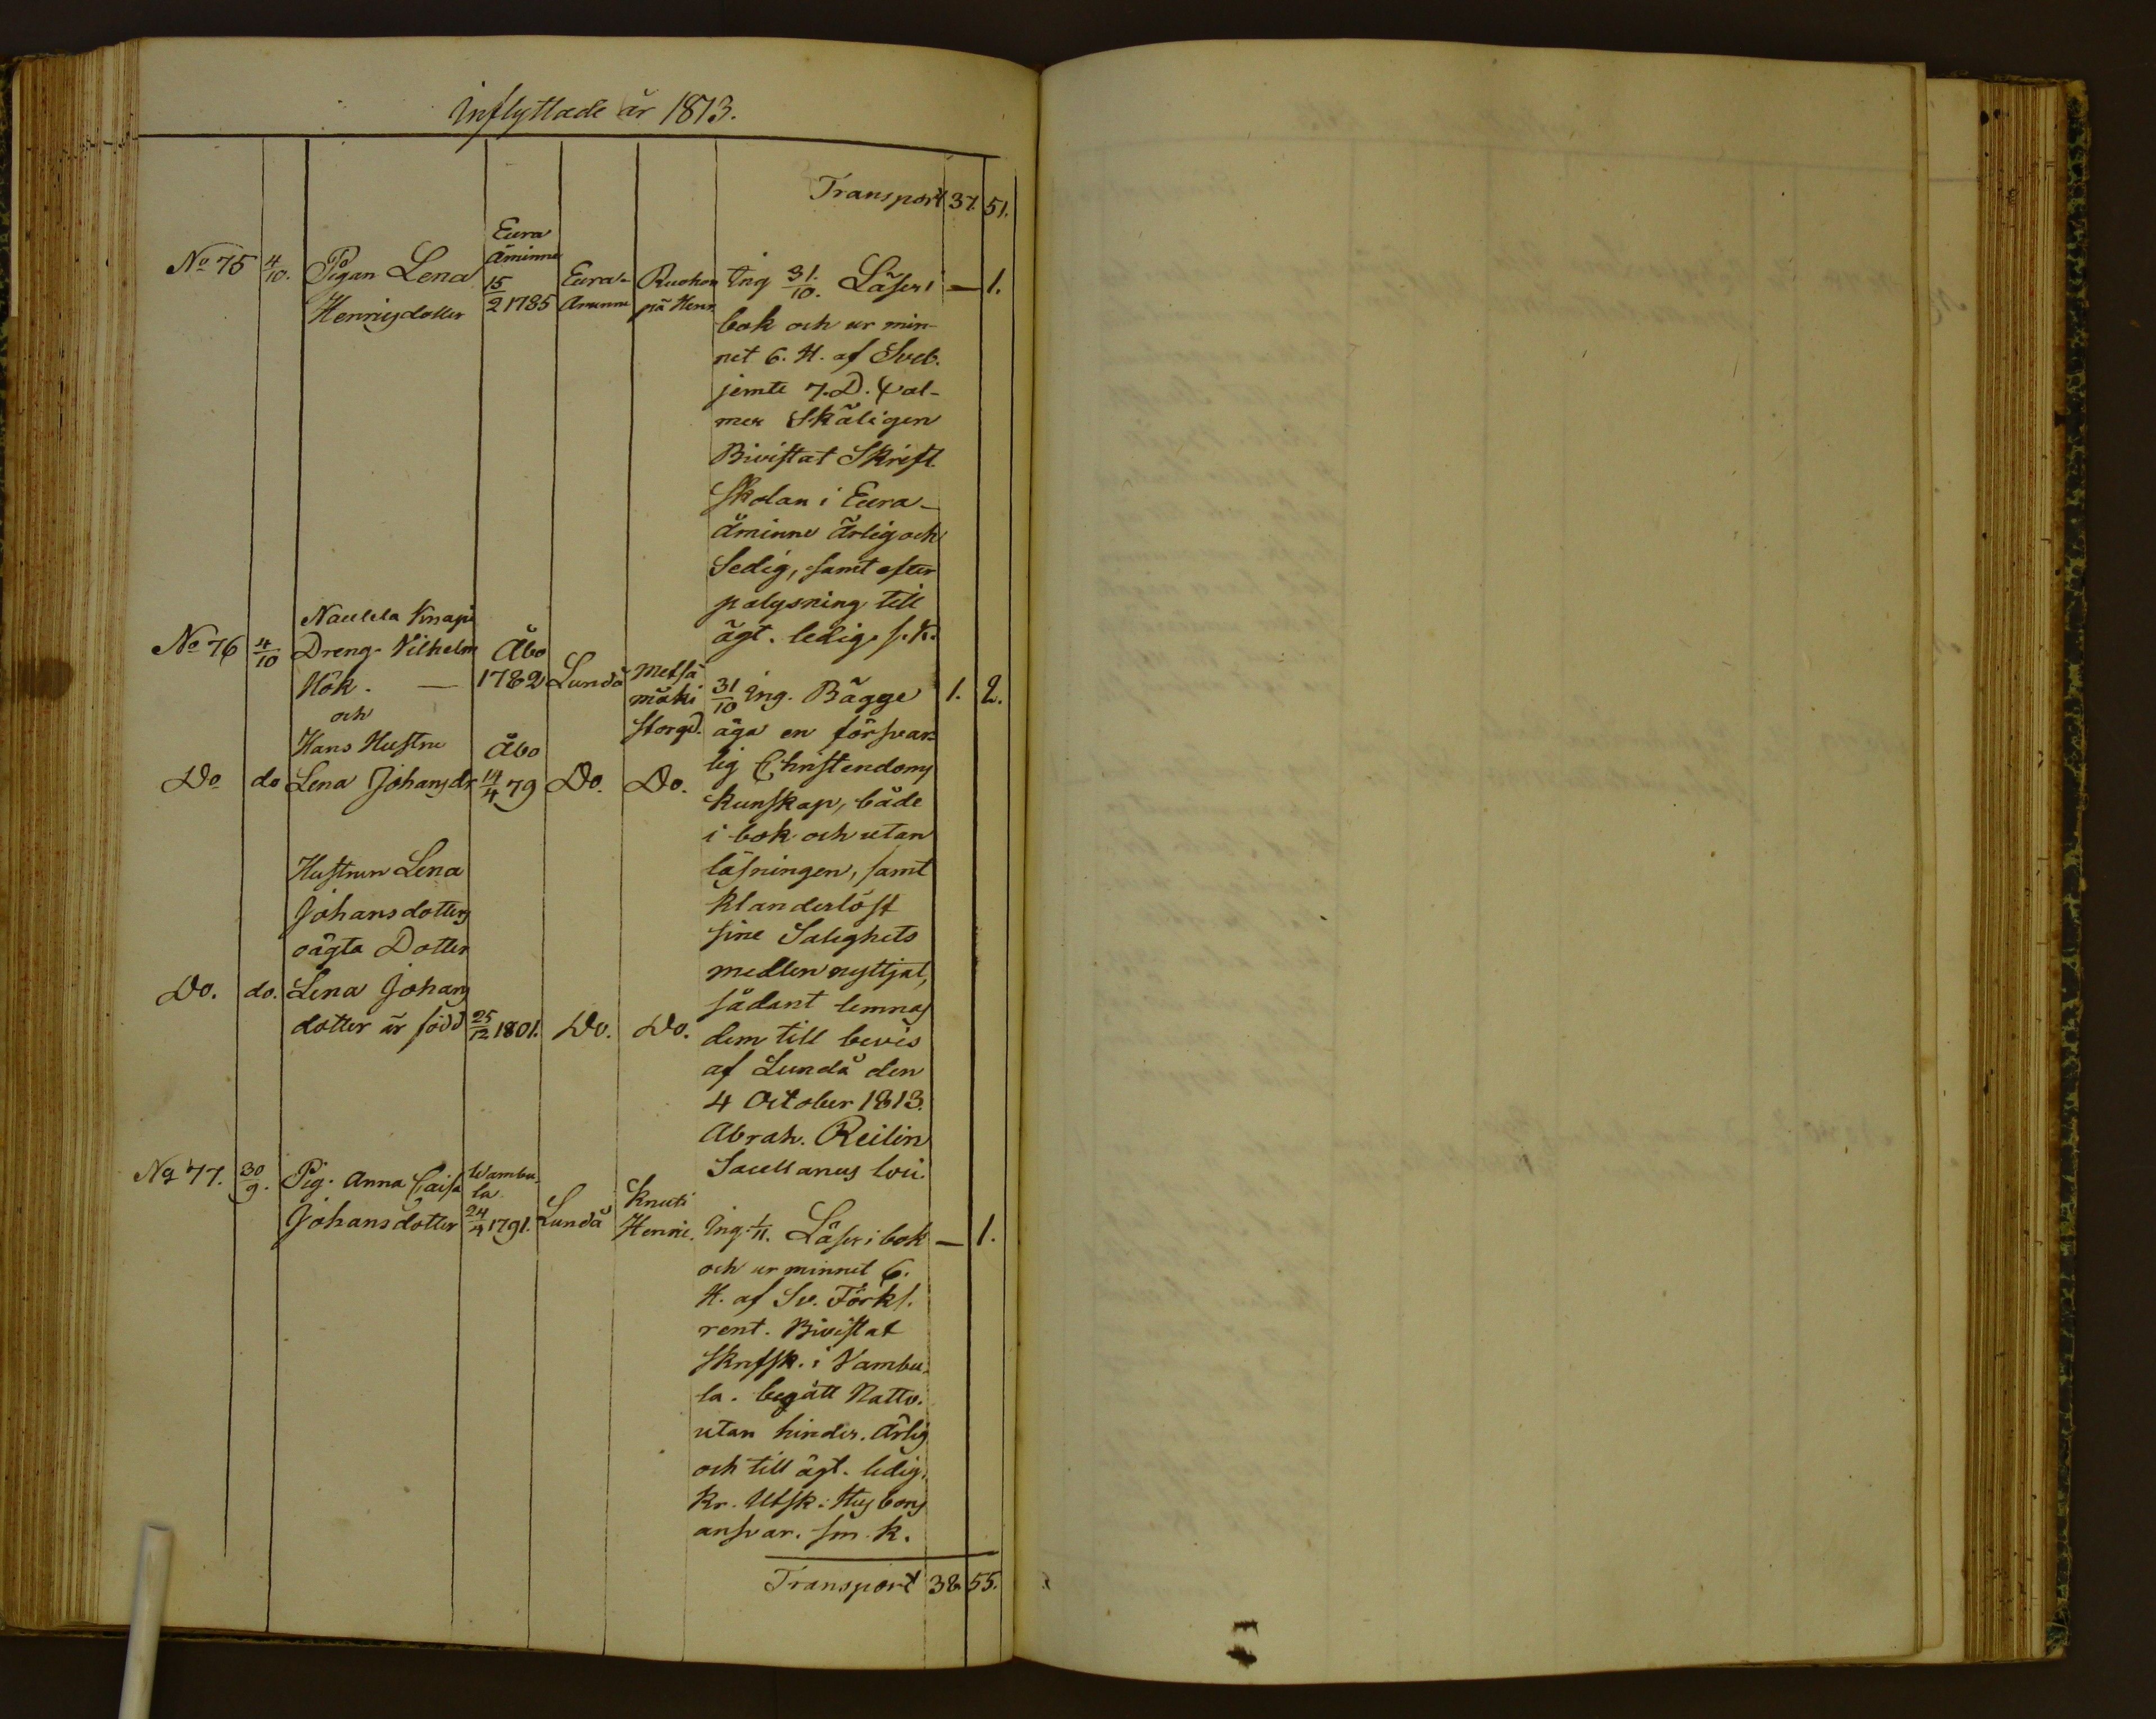 Inflyttade år 1813.
Transport 37. 51.
No 75 4/10. Pigan Lena Henrigsdotter Eura Åminne 15/2 1785 Eura-Åminne Ruohon pä Henr.
Ing 31/10. Läser i — 1.
bok och ur min-
net 6. H. af Sveb.
jemte 7. D. ψal-
mer Skäligen
Bivistat Skrift
skolan i Eura-
åminne Ärlig och
Sedig, samt efter
palysning till
ägt. ledig. s. k.
No 76 4/10 Naulela Knapi
Dreng. Vilhelm Åbo
Hök. — 1782 Lundå Metsä
mäki
storgd.
och
Hans Hustru Åbo
Do do Lena Johansdr 14/4 79 Do. Do.
31/10 Ing. Bägge 1. 2.
äga en försvar-
lig Christendoms
kunskap, både
i bok och utan
läsningen, samt
klanderlöst
sine Salighets
medlen nyttjat,
sådant lemnas
dem till bevis
af Lundå den
4 October 1813.
Abrah. Reilin
Sacellanus loci.
Hustrun Lena
Johansdotters
oägta Dotter
Do. do. Lena Johans
dotter är född 25/12 1801. Do. Do.
No 77. 30/9. Pig. Anna Caisa Wambu-
la
Johansdotter 24/4 1791. Lundå Knuti
Henric.
Ing. 1/11. Läser i bok — 1.
och ur minnet 6.
H. af Sv. Förkl.
rent. Bivistat
Skrifsk. i Vambu-
la. begått Nattv.
utan hinder. Ärlig
och till ägt. ledig.
Kr. Utsk. Husbons
ansvar. sm. k.
Transport 38. 55.